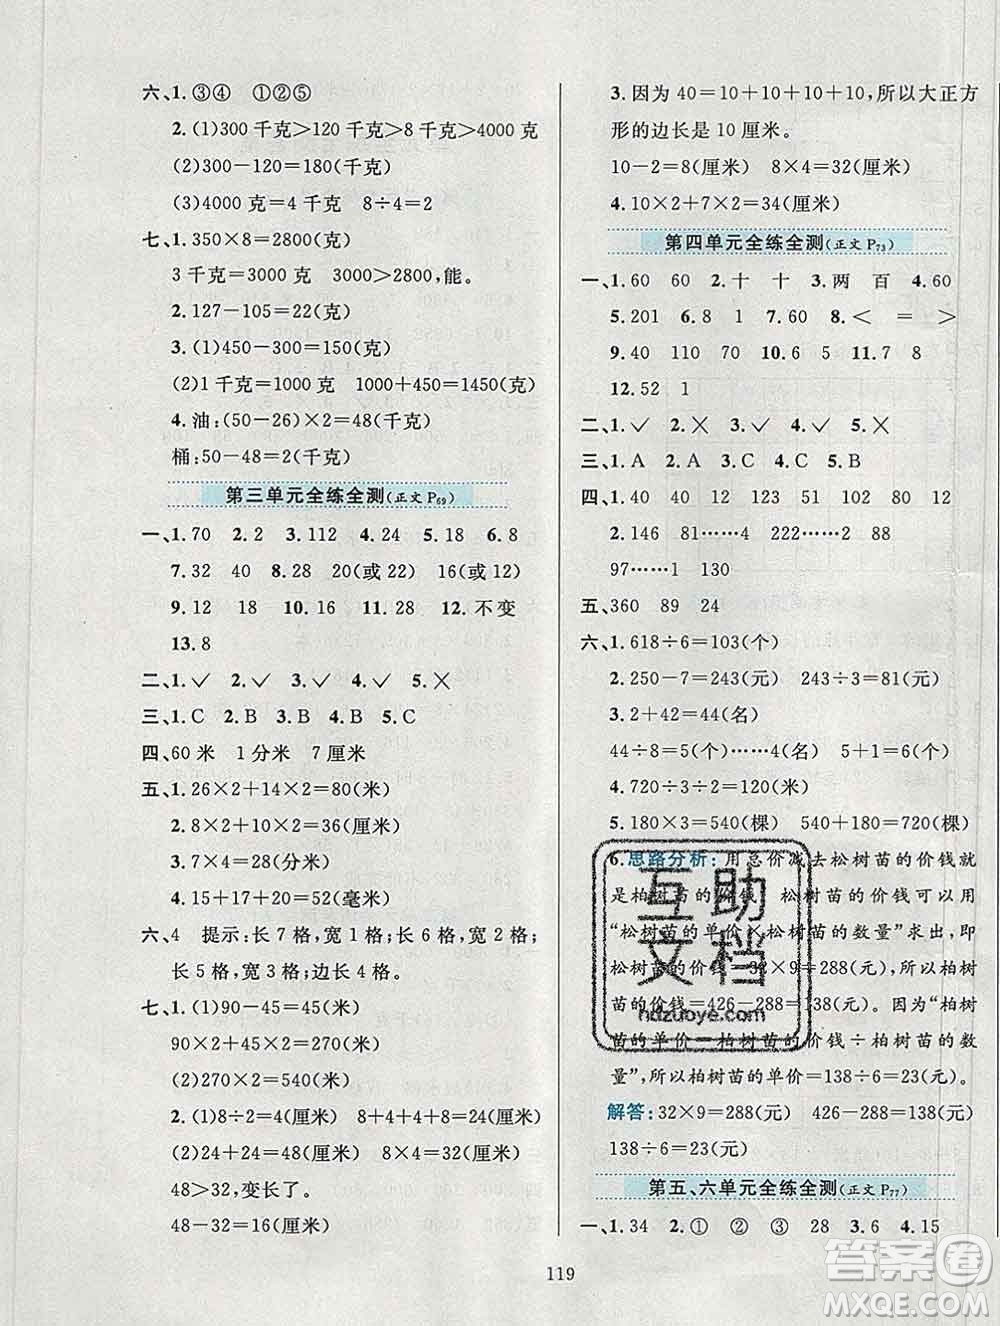 六、1.③④　①②⑤
2.(1)300 千克>120 千克>8 千克>4000 克
(2)300－120=180(千克)
(3)4000 克=4 千克　8÷4=2
七、1.350×8=2800(克)
3 千克=3000 克　3000>2800,能。
2.127－105=22(克)
3.(1)450－300=150(克)
(2)1 千克=1000 克　1000+450=1450(克)
4.油:(50－26)×2=48(千克)
桶:50－48=2(千克)
第三单元全练全测(正文 P69)
一、1.70　2.2　3.112　4.24　5.18　6.8
7.32　40　8.28　20(或 22)　16(或 12)
9.12　18　10.36　11.28　12.不变
13.8
二、1.✓　2.✓　3.✓　4.✓　5.✕
三、1.C　2.B　3.B　4.B　5.C
四、60 米　1 分米　7 厘米
五、1.26×2+14×2=80(米)
2.8×2+10×2=36(厘米)
3.7×4=28(分米)
4.17×2+9×2=52(毫米)
六、4　提示:长 7 格,宽 1 格;长 6 格,宽 2 格;
长 5 格,宽 3 格;边长 4 格。
七、1.(1)90－45=45(米)
90×2+45×2=270(米)
(2)270×2=540(米)
2.(1)8÷2=4(厘米)　8+4+4+8=24(厘米)
(2)24+24=48(厘米)　8×4=32(厘米)
48>32,变长了。
48－32=16(厘米)
3.因为 40=10+10+10+10,所以大正方
形的边长是 10 厘米。
10－2=8(厘米)　8×4=32(厘米)
4.10×2+7×2=34(厘米)
第四单元全练全测(正文 P73)
一、1.60　60　2.十　十　3.两　百　4.60
5.201　6.8　1　7.60　8.<　=　>
9.40　110　70　10.85　86　11.7　8
12.52　1
二、1.✓　2.✕　3.✓　4.✓　5.✕
三、1.A　2.A　3.B　4.C　5.B
四、1.40　40　12　123　51　80　120　12
2.146　81……4　222……2　87
97……1　130
五、360　89　24
六、1.618÷6=103(个)
2.250－7=243(元)　243÷3=81(元)
3.2+42=44(名)
44÷8=5(个)……4(名)　5+1=6(个)
4.720÷3÷2=120(米)
5.180×3=540(棵)　540+180=720(棵)
6.思路分析:用总价减去松树苗的价钱就
是柏树苗的价钱　松树苗的价钱可以用
“松树苗的单价×松树苗的数量”求出,即
松树苗的价钱=32×9=288(元)。则柏树
苗的价钱=426－288=138(元)。因为“柏树
苗的单价=柏树苗的价钱÷柏树苗的数
量”,所以柏树苗的单价=138÷6=23(元)。
解答:32×9=288(元)　426－288=138(元)
138÷6=23(元)
第五、六单元全练全测(正文 P77)
一、1.34　2.①　②　③　28　3.6　4.15
119
互助
文档
hdzuoye.com
答案圈
MXQE.COM